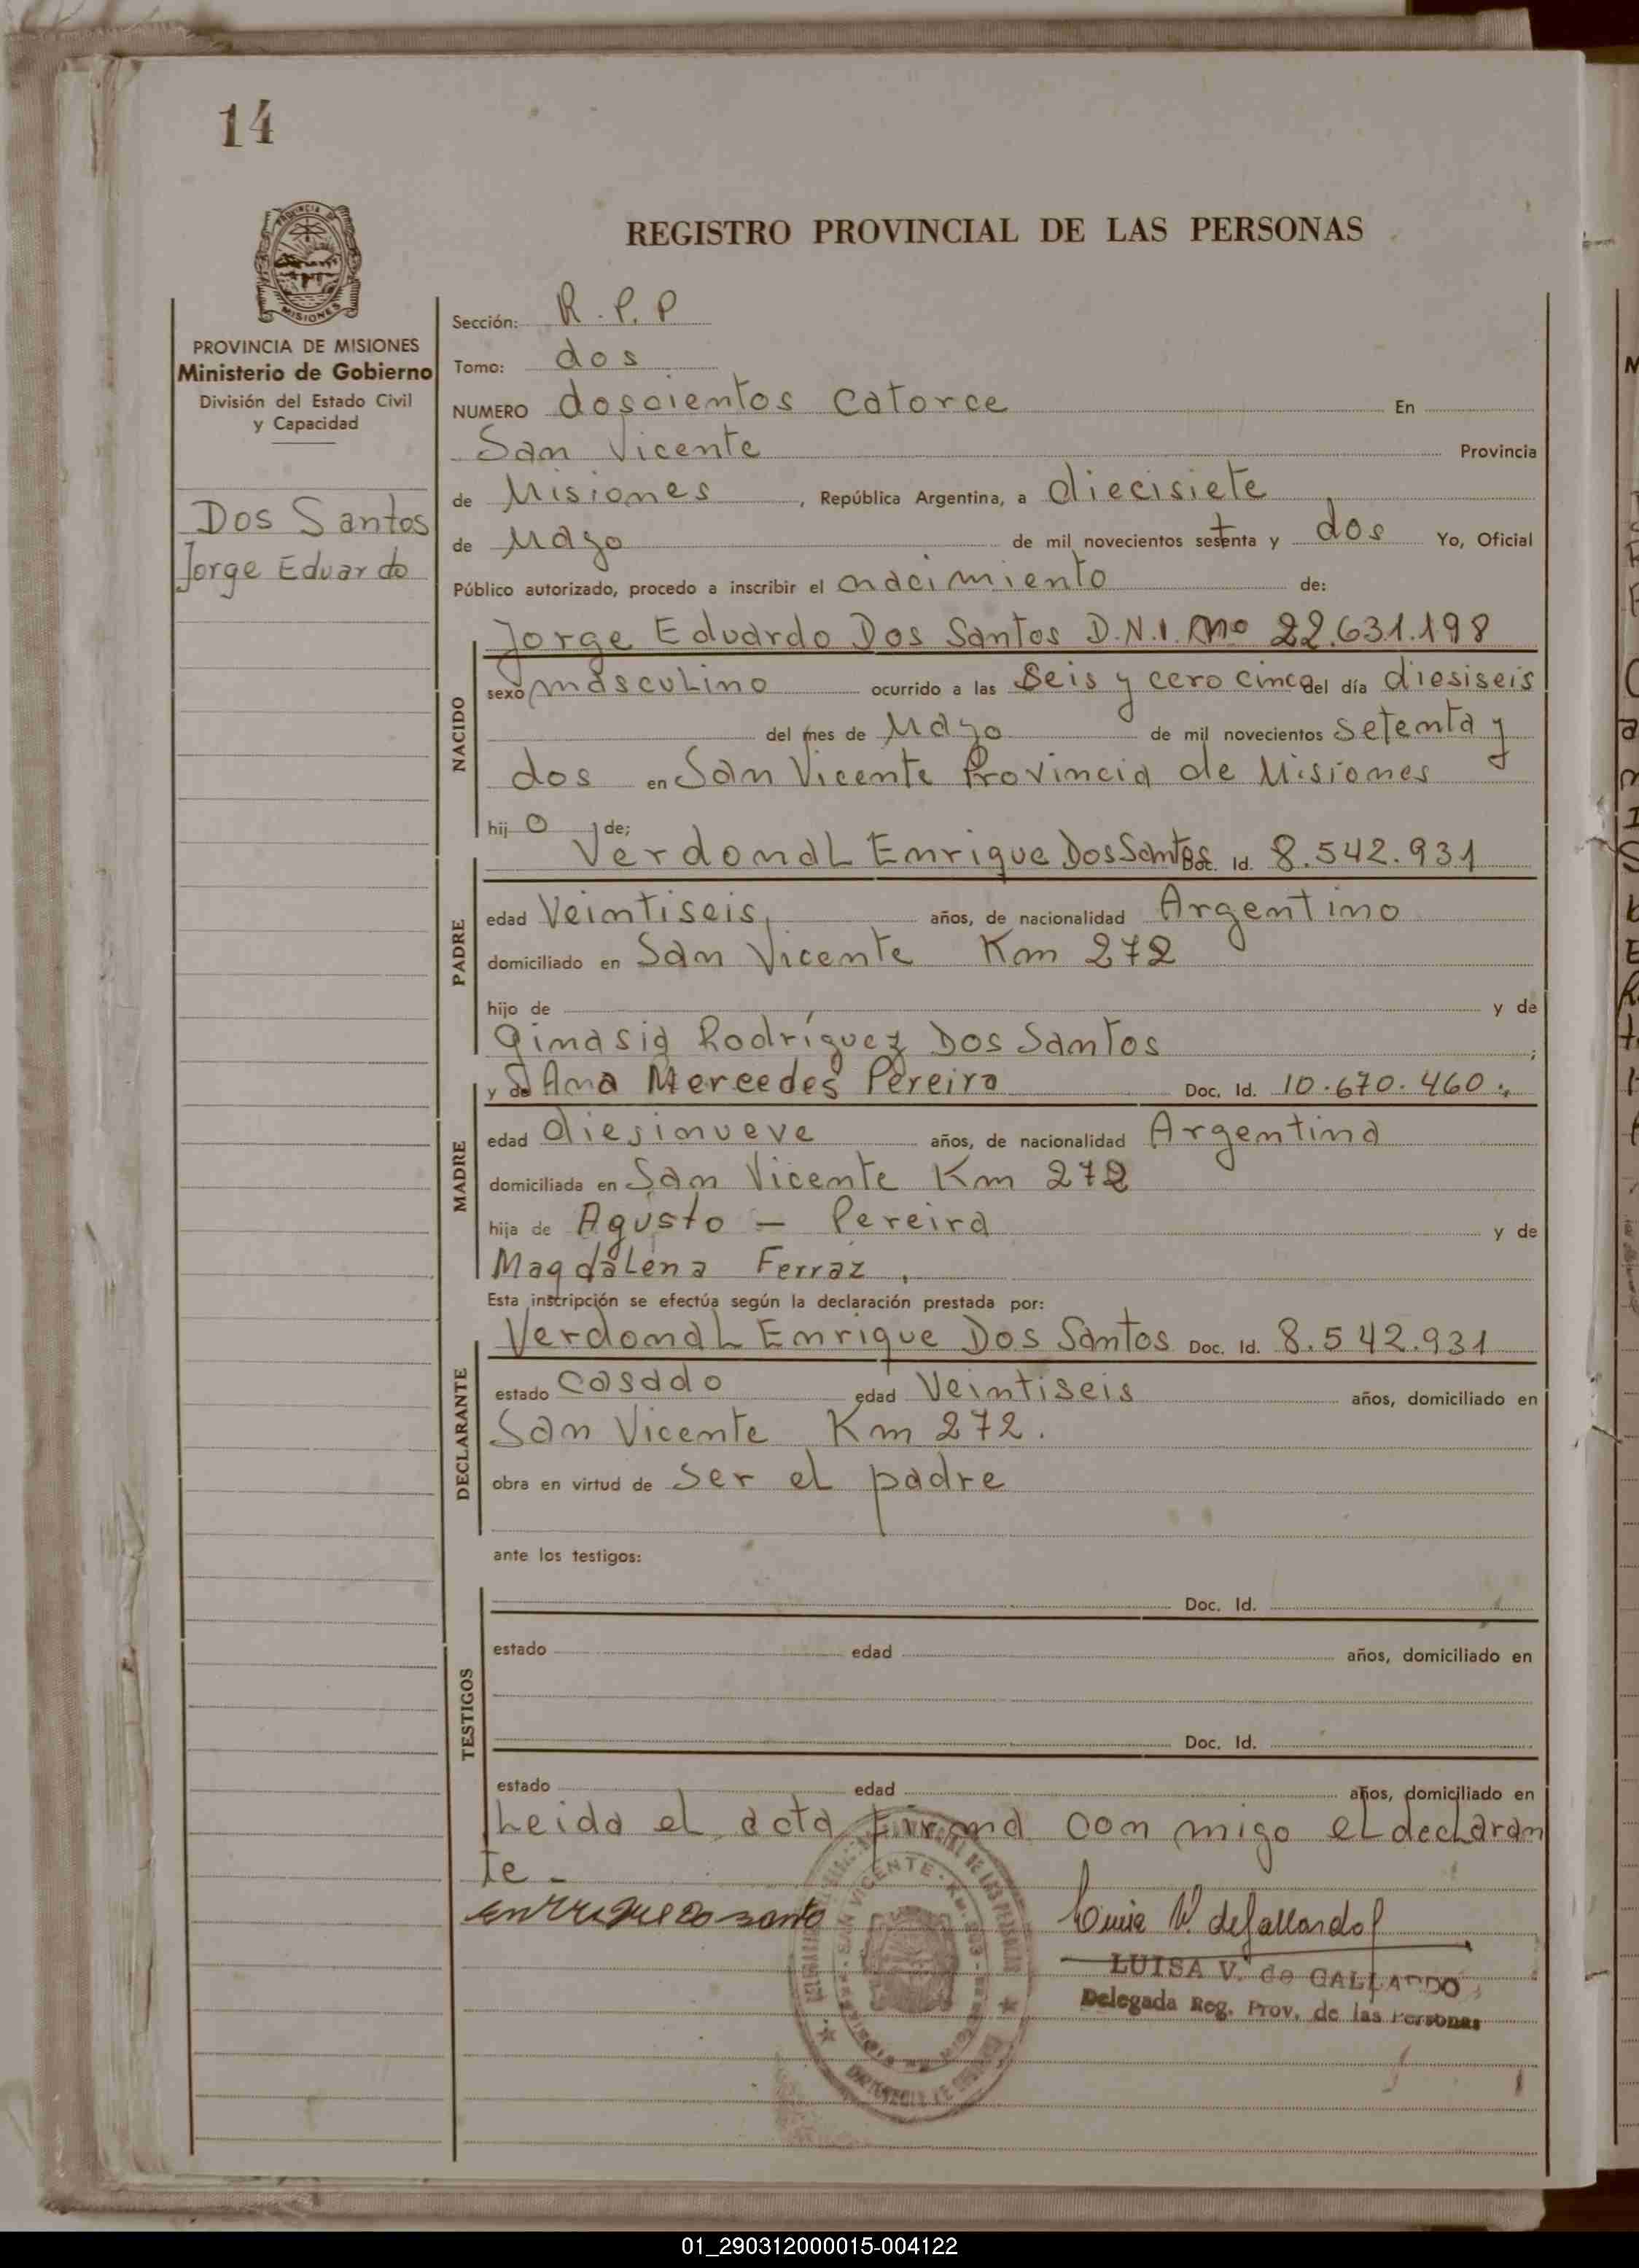 14
REGISTRO PROVINCIAL DE LAS PERSONAS
PROVINCIA DE MISIONES
MISIONES
PROVINCIA DE MISIONES
Ministerio de Gobierno
División del Estado Civil
y Capacidad
Dos Santos
Jorge Eduardo
Sección: R. P. P
Tomo: dos
NUMERO doscientos catorce En
San Vicente Provincia
de Misiones, República Argentina, a diecisiete
de Mayo de mil novecientos setenta y dos Yo, Oficial
Público autorizado, procedo a inscribir el nacimiento de:
NACIDO
Jorge Eduardo Dos Santos D.N.I. no 22.631.198
sexo masculino ocurrido a las Seis y cero cinco del día diesiseis
del mes de Mayo de mil novecientos setenta y
dos en San Vicente Provincia de Misiones
hij o de;
PADRE
Verdonal Enrique Dos Santos Doc. Id. 8.542.931
edad Veintiseis, años, de nacionalidad Argentino
domiciliado en San Vicente Km 272
hijo de y de
Rodríguez Dos Santos ;
MADRE
y de Ana Mercedes Pereira Doc. Id. 10.670.460.
edad diesinueve años, de nacionalidad Argentina
domiciliada en San Vicente Km 272
hija de Agusto - Pereira y de
Magdalena Ferraz.
Esta inscripción se efectúa según la declaración prestada por:
DECLARANTE
Verdonal Enrique Dos Santos Doc. Id. 8.542.931
estado casado edad Veintiseis años, domiciliado en
San Vicente Km 272.
obra en virtud de ser el padre
ante los testigos:
TESTIGOS
Doc. Id.
estado edad años, domiciliado en
Doc. Id.
estado edad años, domiciliado en
Leida el acta firma con migo el declaran
te -
Enrique do santo
Luisa V. de Gallardo
LUISA V. de GALLARDO
Delegada Reg. Prov. de las Personas
SAN VICENTE
01_290312000015-004122